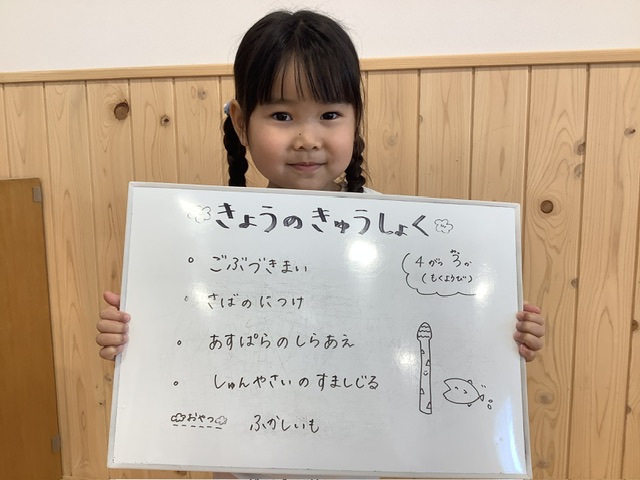 きょうのきゅうしょく
4がつ か
(もくようび)
ごぶづきまい
さばのにつけ
あすぱらのしらあえ
しゅんやさいのすましじる
おやつ ふかしいも